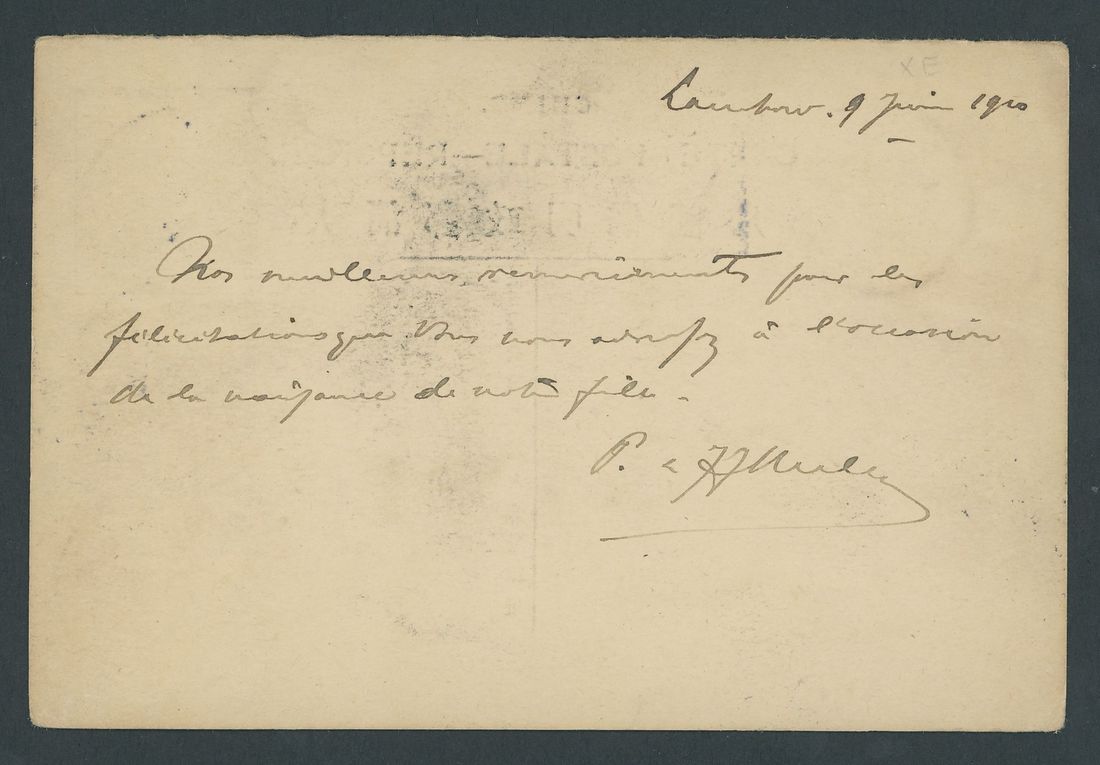 Lanchow. 9 Juin 1910
Nos meilleurs remerciements pour les
félicitations que Vous nous adressez à l'occasion
de la naissance de notre fils.
P. &